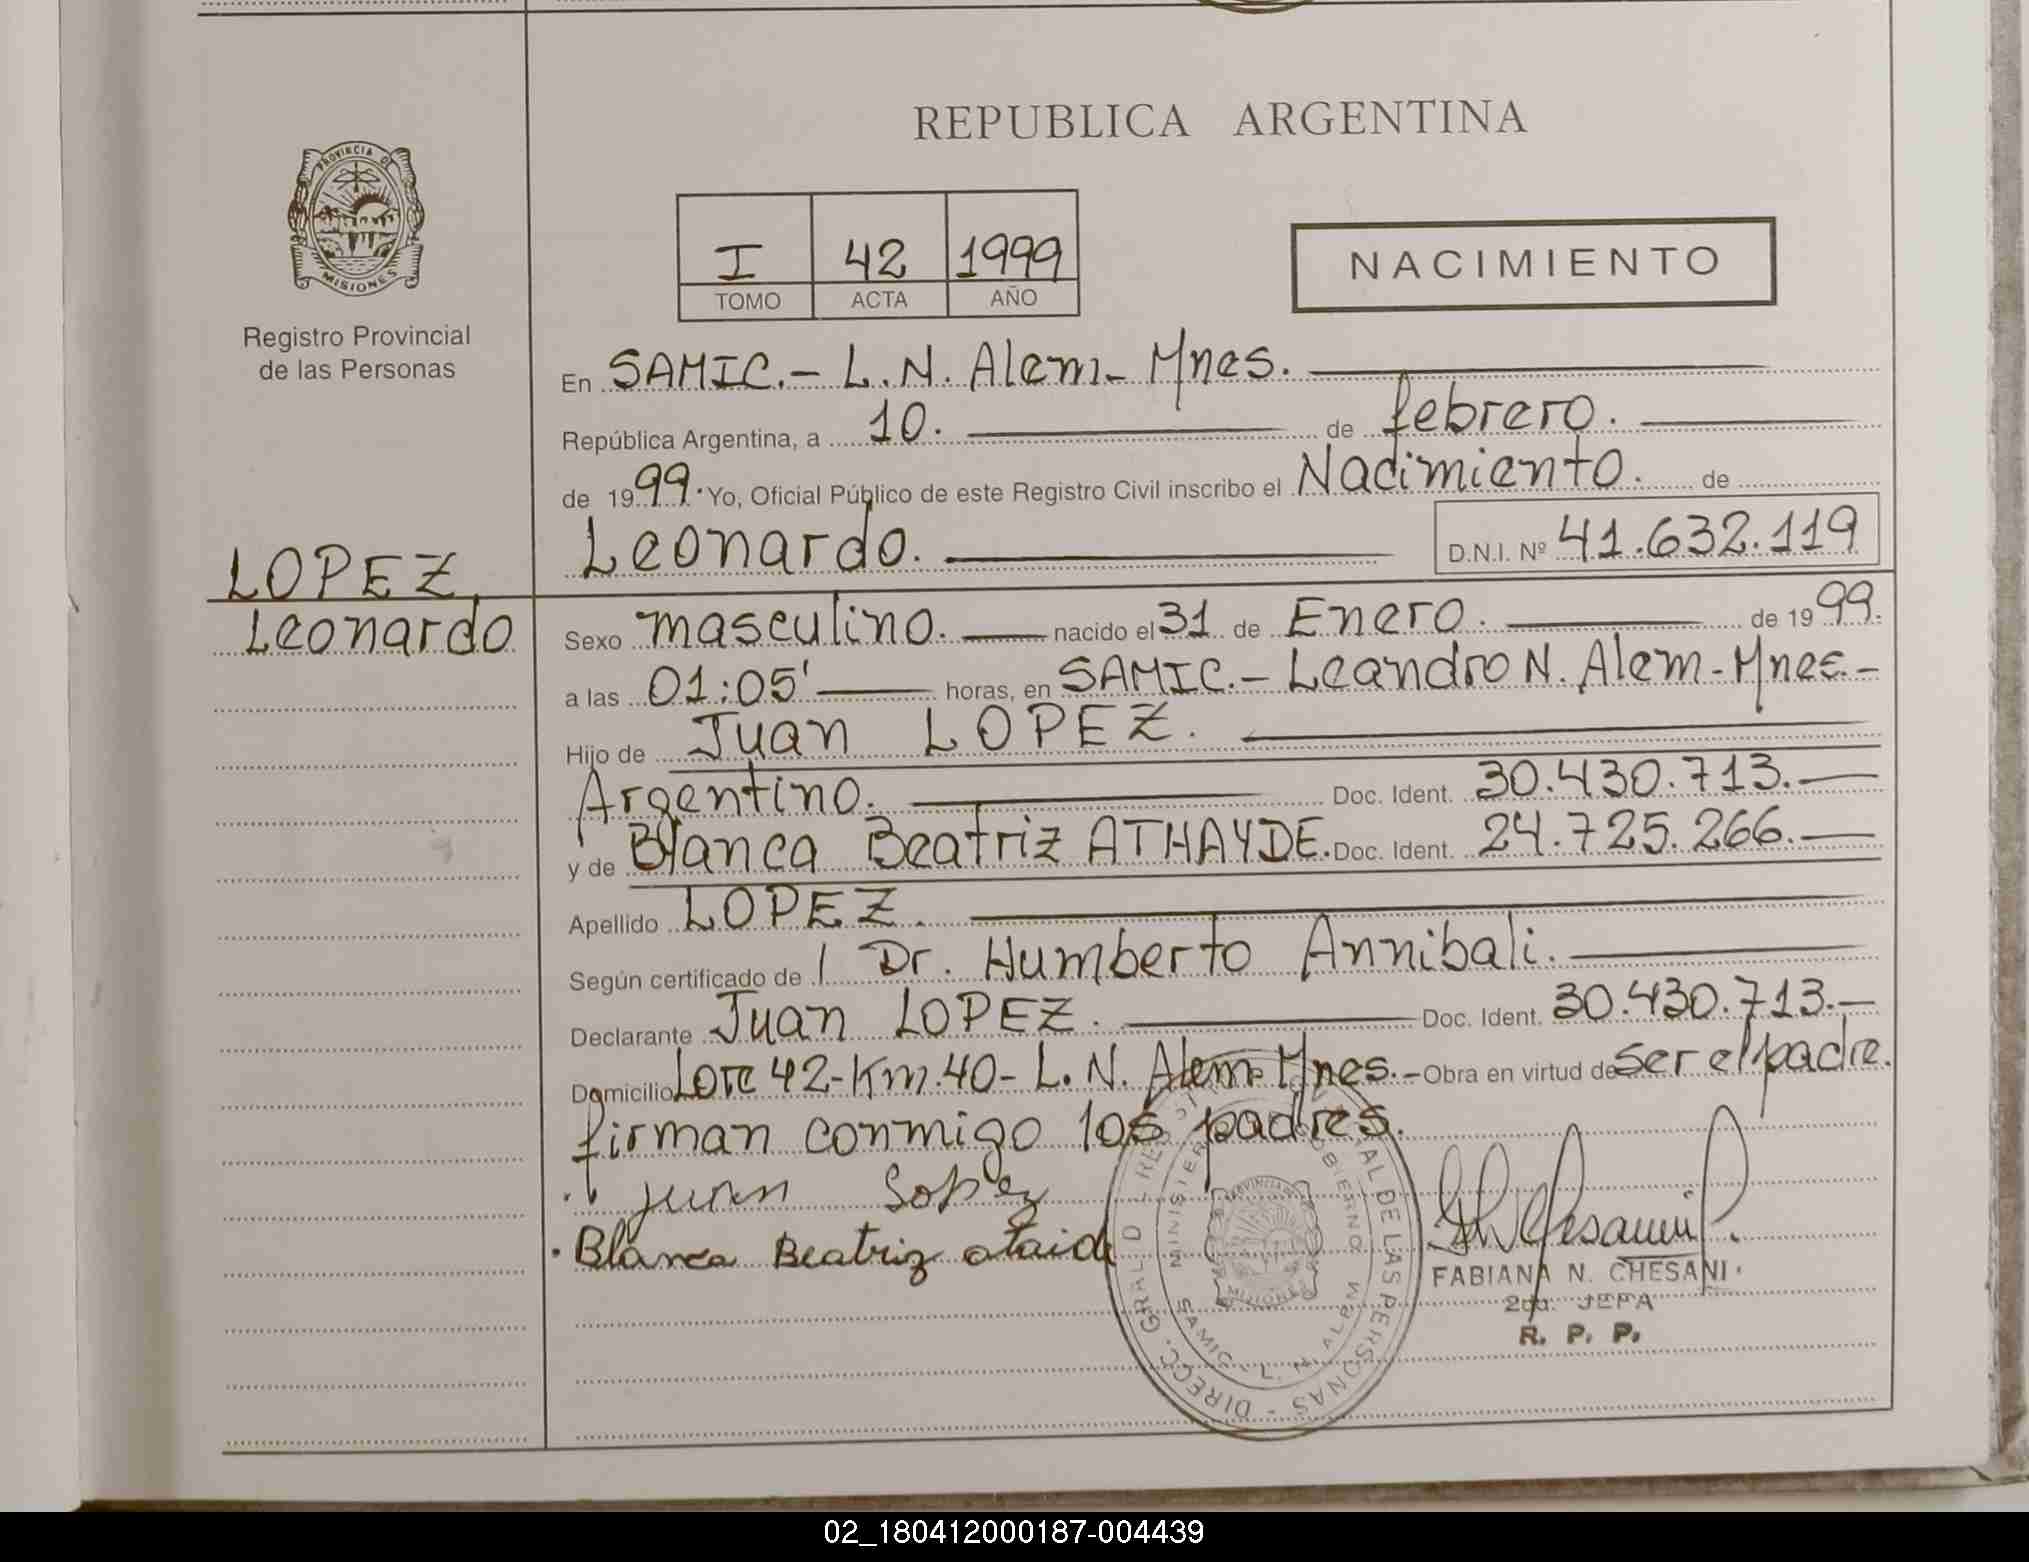 REPUBLICA ARGENTINA
PROVINCIA DE
MISIONES
Registro Provincial
de las Personas
I 42 1999
TOMO ACTA AÑO
NACIMIENTO
En SAMIC.- L.N. Alem- Mnes.
República Argentina, a 10. de febrero.
de 1999. Yo, Oficial Público de este Registro Civil inscribo el Nacimiento. de
Leonardo. D.N.I. Nº 41.632.119
LOPEZ,
Leonardo
Sexo masculino. nacido el 31 de Enero. de 1999.
a las 01:05' horas, en SAMIC.- Leandro N. Alem-Mnes.-
Hijo de Juan LOPEZ.
Argentino. Doc. Ident. 30.430.713.-
y de Blanca Beatriz ATHAYDE. Doc. Ident. 24.725.266.-
Apellido LOPEZ.
Según certificado de Dr. Humberto Annibali.
Declarante Juan LOPEZ. Doc. Ident. 30.430.713.-
Domicilio Lote 42-Km.40- L.N. Alem- Mnes.- Obra en virtud de ser el padre.
firman conmigo los padres.
juan Lopez
Blanca Beatriz ataide
FABIANA N. CHESANI
2da. JEFA
R. P. P.
DIRECC. GRAL D AL DE LAS PERSONAS
SAMIC - L. N. ALEM
PROVINCIA
MISIONES
02_180412000187-004439